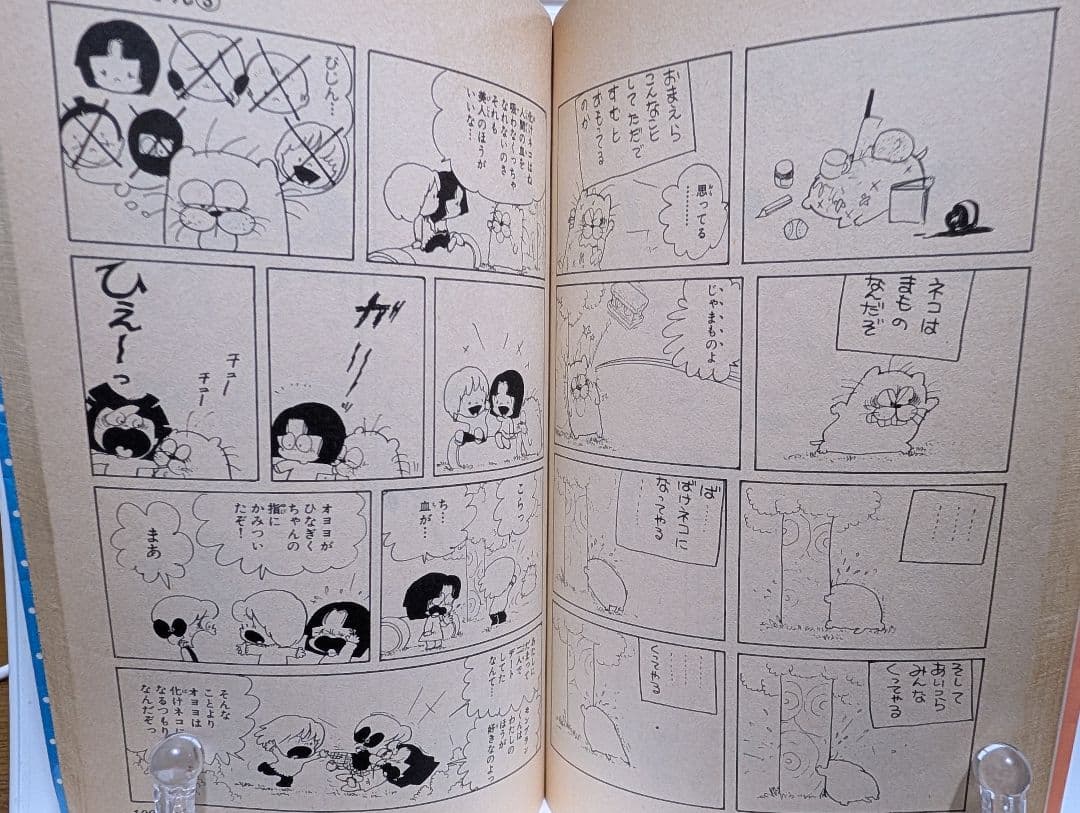 おまえら
こんなこと
してただで
すむと
おもてる
のか
思ってる
………
ネコは
まもの
なんだぞ
じゃまものよ
ば……
ばけネコに
なってやる
そして
あいつら
みんな
くってやる
くってやる
化けネコはね
人間の血を
吸わなくっちゃ
なれないのさ
それも
美人のほうが
いいな…
びじん…
ガリーッ
ひえ〜っ
チュー
チュー
こらっ
ち…
血が…
オヨヨが
ひなぎく
ちゃんの
指に
かみつい
たぞ!
まあ
だまって
二人で
デート
してた
なんて…
わたしの
ほうが
好きなのよっ
そんな
ことより
オヨヨは
化けネコに
なるつもり
なんだぞっ